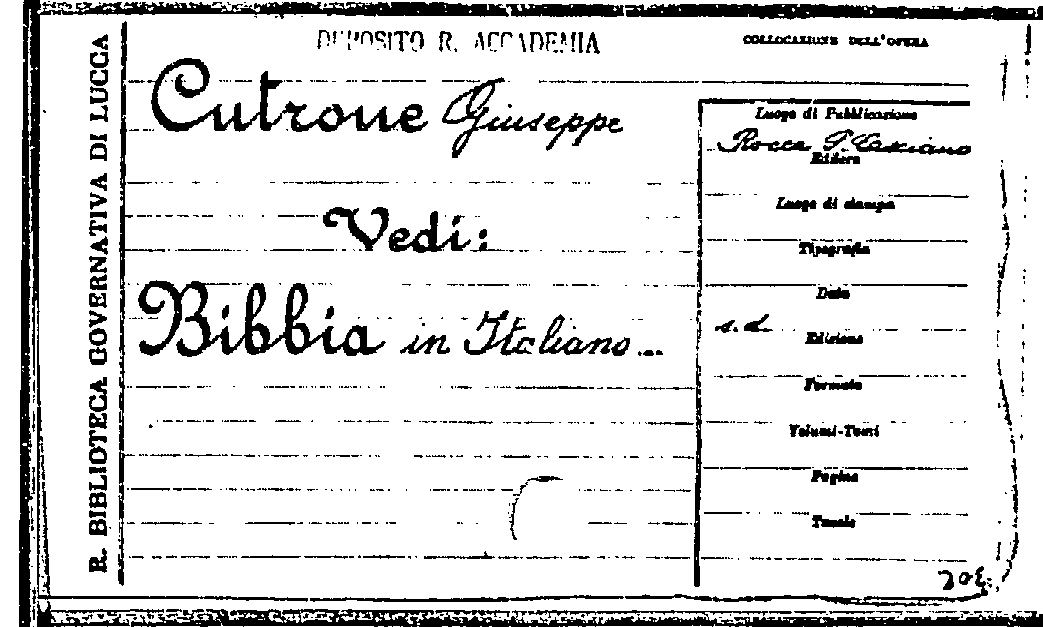 R. BIBLIOTECA GOVERNATIVA DI LUCCA
DEPOSITO R. ACCADEMIA
COLLOCAZIONE DELL'OPERA
Cutrone Giuseppe
Vedi:
Bibbia in Italiano...
Luogo di Pubblicazione
Rocca S. Casciano
Editore
Luogo di stampa
Tipografia
Data
s.d.
Edizione
Formato
Volumi-Tomi
Pagine
Tavole